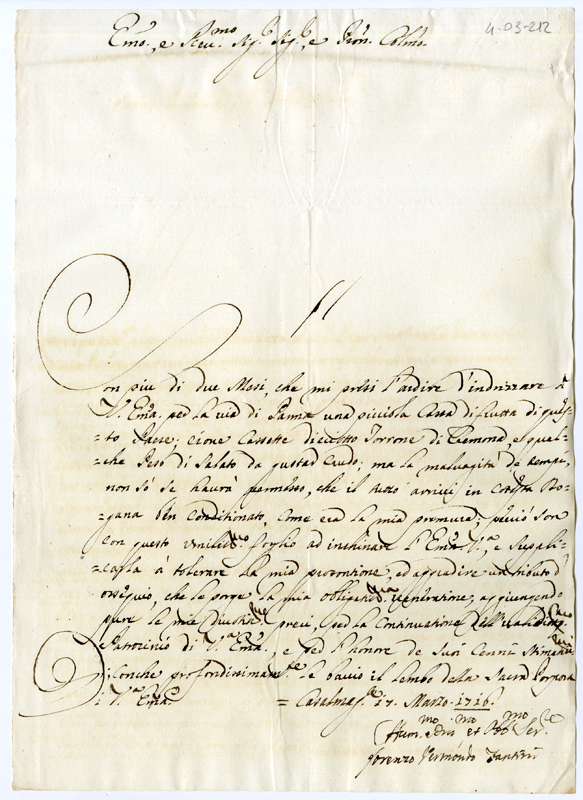 4-03-212
Emo., e Reu.mo Sig.r Sig.r, e Pron. Colmo.
Son piu di due Mesi, che mi presi l'ardire d'indrizzare à
V.a Emã. per la via di Parma una picciola Cassa di frutta di ques=
=to Paese; cioue Cassette dieciotto Torrone di Cremona, e qual=
=che Peso di Salato da gustar Crudo; ma la maluagità de tempi,
non sò se haurà permesso, che il tutto arriui in cotesta Do=
=gana ben Conditionato, Come era la mia premura; perciò son
Con questo umiliss.mo foglio ad inchinare l'Emã. V.a, e Suppli=
=carla à tolerare la mia prontione, ed aggradire un tributo d'
ossequio, che le porge la mia obligatis.ma ueneratione, aggiungendo
pure le mie preci, per la Continuatione dell'
Patrocinio di V.a Emã., e per l'honore de Suoi Cenni Stimatis.mi
; Conche profondissimam.te le baccio il lembo della Sacra Porpora
= V.a Emã. = Casalmag.re 17. Marzo. 1716.
Hum.mo Deu.mo et Obb.mo Ser.e
Lorenzo